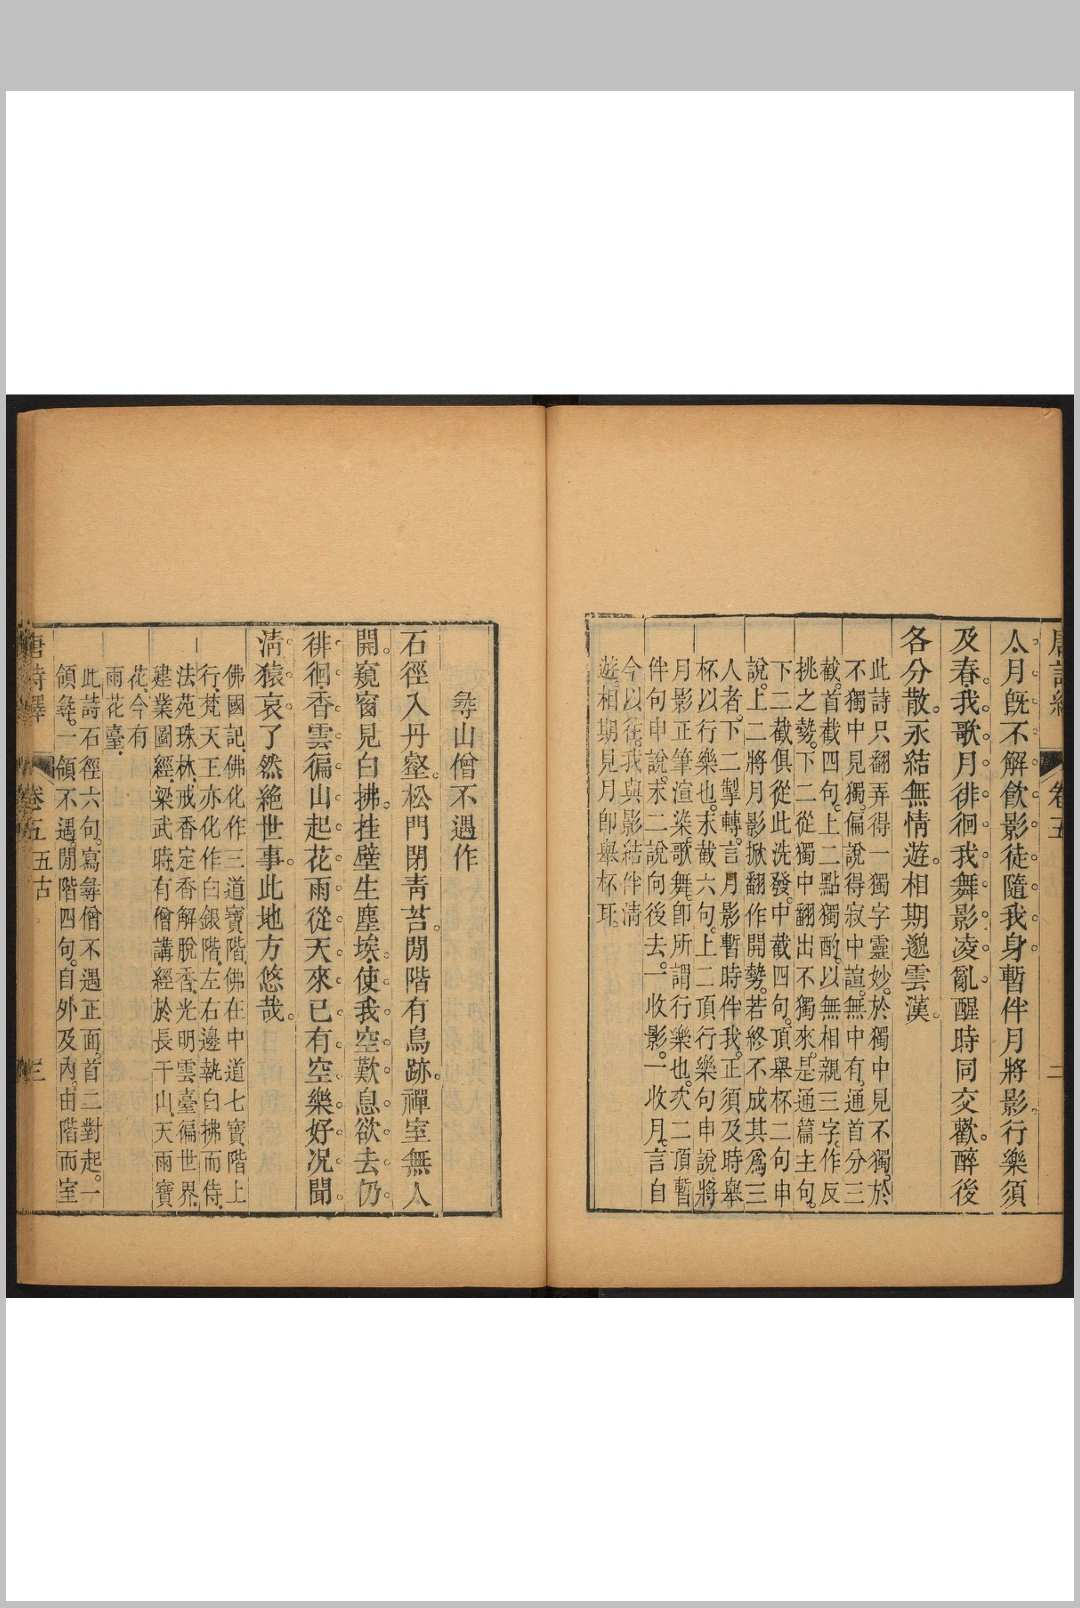 人月既不解飮影徒隨我身暫伴月將影行樂須
及春我歌月徘徊我舞影凌亂醒時同交歡醉後
各分散永結無情遊相期邈雲漢
此詩只翻弄得一獨字靈妙於獨中見不獨於
不獨中見獨偏說得寂中諠無中有通首分三
截首截四句上二點獨酌以無相親三字作反
挑之勢下二從獨中翻出不獨來是通篇主句
下二截俱從此洗發中截四句頂舉杯二句申
說上二將月影掀翻作開勢若終不成其爲三
人者下二掣轉言月影暫時伴我正須及時舉
杯以行樂也末截六句上二頂行樂句申說將
月影正筆渲染歌舞卽所謂行樂也次二頂暫
伴句申說末二說向後去一收影一收月言自
今以往我與影結伴淸
遊相期見月卽舉杯耳
卷五
二
尋山僧不遇作
石徑入丹壑松門閉靑苔閒階有鳥跡禪室無人
開窺窗見白拂挂壁生塵埃使我空歎息欲去仍
徘徊香雲徧山起花雨從天來已有空樂好況聞
淸猿哀了然絶世事此地方悠哉
佛國記佛化作三道寶階佛在中道七寶階上
行梵天王亦化作白銀階左右邊執白拂而侍
法苑珠林戒香定香解脫香光明雲臺徧世界
建業圖經梁武時有僧講經於長干山天雨寶
花今有
雨花臺
此詩石徑六句寫尋僧不遇正面首二對起一
領尋一領不遇閒階四句自外及內由階而室
唐詩繹
卷五 五古
三